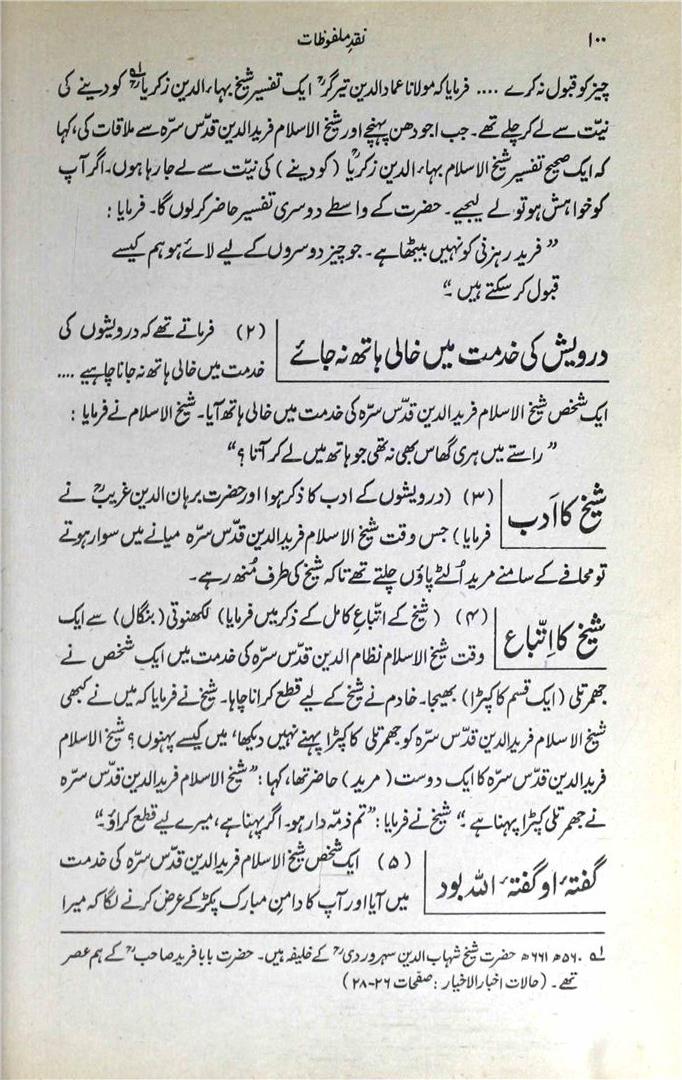 ۱۰۰
نقدِ ملفوظات
چیز کو قبول نہ کرے .... فرمایا کہ مولانا عماد الدین تیرگرؒ ایک تفسیر شیخ بہاء الدین زکریاؒ لہ کو دینے کی
نیّت سے لے کر چلے تھے۔ جب اجودھن پہنچے اور شیخ الاسلام فرید الدین قدّس سرّہ سے ملاقات کی، کہا
کہ ایک صحیح تفسیر شیخ الاسلام بہاء الدین زکریاؒ (کو دینے) کی نیّت سے لے جا رہا ہوں۔ اگر آپ
کو خواہش ہو تو لے لیجیے۔ حضرت کے واسطے دوسری تفسیر حاضر کر لوں گا۔ فرمایا :
”فرید رہزنی کو نہیں بیٹھا ہے۔ جو چیز دوسروں کے لیے لائے ہو ہم کیسے
قبول کر سکتے ہیں۔“
درویش کی خدمت میں خالی ہاتھ نہ جائے
(۲) فرماتے تھے کہ درویشوں کی
خدمت میں خالی ہاتھ نہ جانا چاہیے ....
ایک شخص شیخ الاسلام فرید الدین قدّس سرّہ کی خدمت میں خالی ہاتھ آیا۔ شیخ الاسلام نے فرمایا :
”راستے میں ہری گھاس بھی نہ تھی جو ہاتھ میں لے کر آتا؟“
شیخ کا اَدب
(۳) (درویشوں کے ادب کا ذکر ہوا اور حضرت برہان الدین غریبؒ نے
فرمایا) جس وقت شیخ الاسلام فرید الدین قدّس سرّہ میانے میں سوار ہوتے
تو محافے کے سامنے مرید اُلٹے پاؤں چلتے تھے تاکہ شیخ کی طرف مُنھ رہے۔
شیخ کا اِتّباع
(۴) (شیخ کے اتباعِ کامل کے ذکر میں فرمایا) لکھنوتی (بنگال) سے ایک
وقت شیخ الاسلام نظام الدین قدّس سرّہ کی خدمت میں ایک شخص نے
جھمرتلی (ایک قسم کا کپڑا) بھیجا۔ خادم نے شیخ کے لیے قطع کرانا چاہا۔ شیخ نے فرمایا کہ میں نے کبھی
شیخ الاسلام فرید الدین قدّس سرّہ کو جھمرتلی کا کپڑا پہنے نہیں دیکھا، میں کیسے پہنوں؟ شیخ الاسلام
فرید الدین قدّس سرّہ کا ایک دوست (مرید) حاضر تھا، کہا : ”شیخ الاسلام فرید الدین قدّس سرّہ
نے جھمرتلی کپڑا پہنا ہے۔“ شیخ نے فرمایا : ”تم ذمّہ دار ہو۔ اگر پہنا ہے، میرے لیے قطع کراؤ۔“
گفتۂ او گفتۂ اللہ بود
(۵) ایک شخص شیخ الاسلام فرید الدین قدّس سرّہ کی خدمت
میں آیا اور آپ کا دامنِ مبارک پکڑ کے عرض کرنے لگا کہ میرا
لہ ۵۶۰ھ ۶۶۱ھ حضرت شیخ شہاب الدین سہروردیؒ کے خلیفہ ہیں۔ حضرت بابا فرید صاحبؒ کے ہم عصر
تھے۔ (حالات اخبار الاخیار : صفحات ۲۶-۲۸)